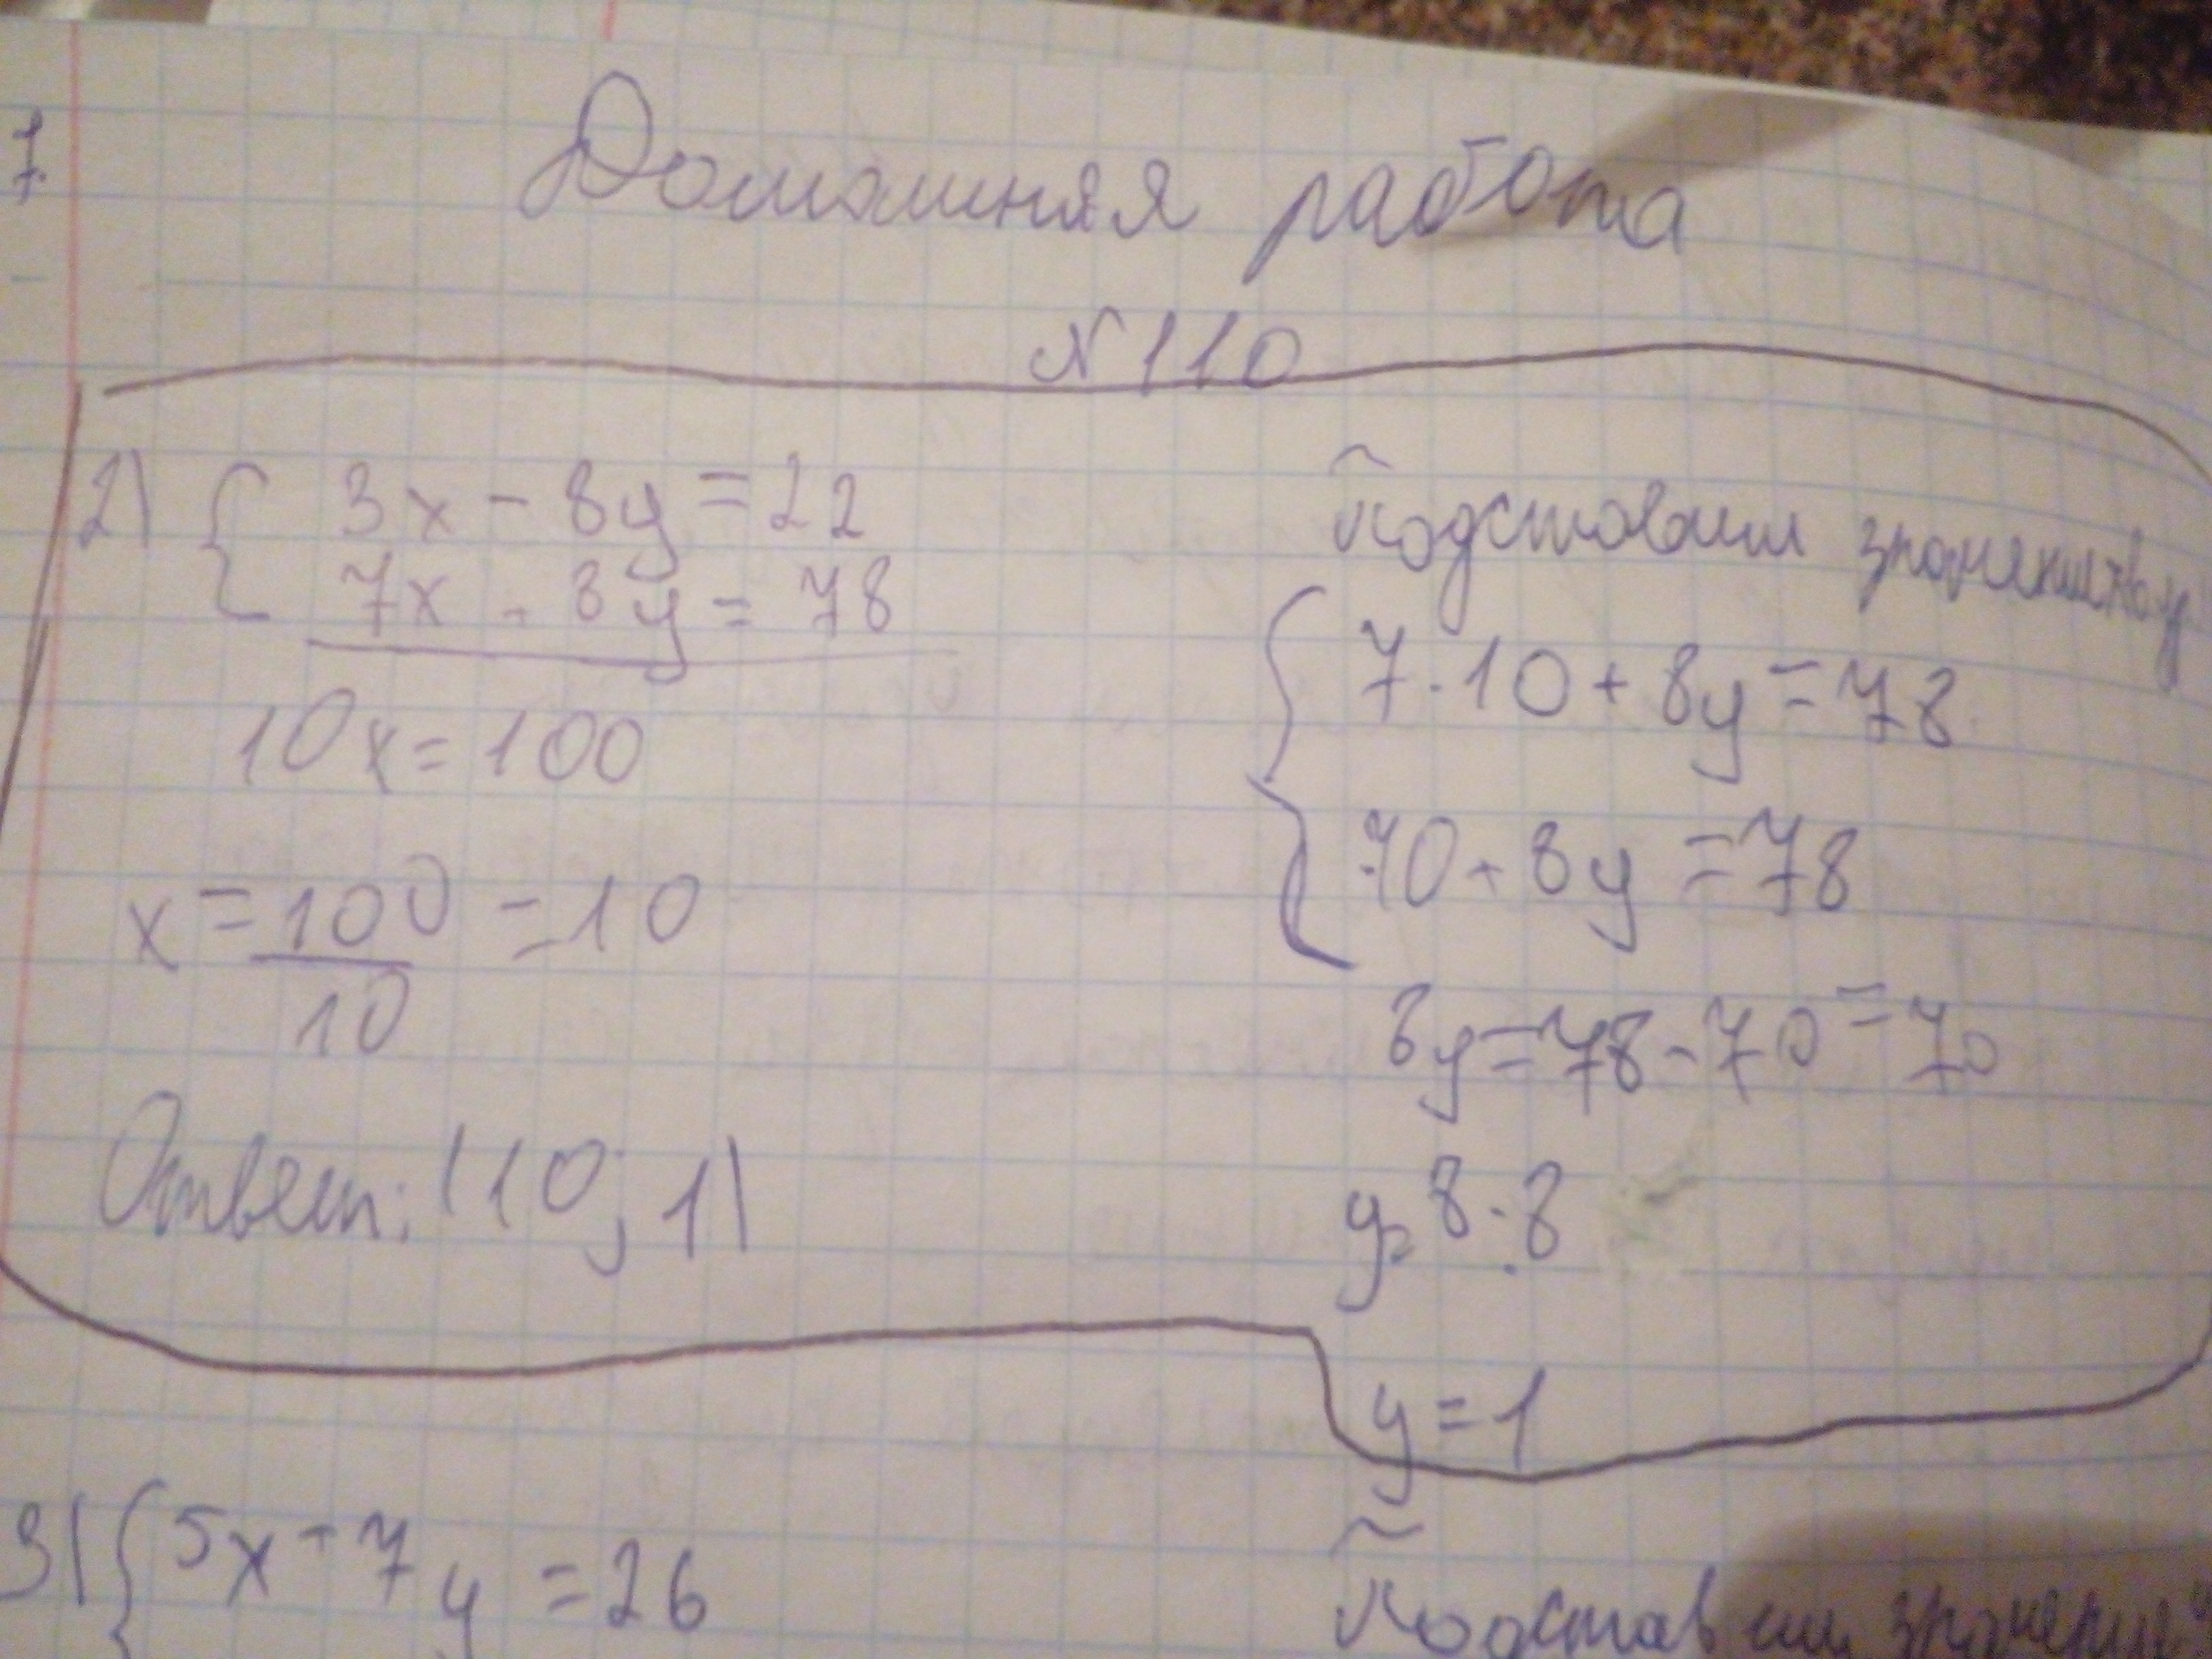 7.
Домашняя работа
№110
2) { 3x - 8y = 22
7x - 8y = 78
10x = 100
x = 100/10 = 10
Ответ: (10; 1)
Подставим
{ 7·10 + 8y = 78
70 + 8y = 78
8y = 78 - 70 = 70
y = 8:8
y = 1
3) { 5x - 7y = 26
Подставим значение